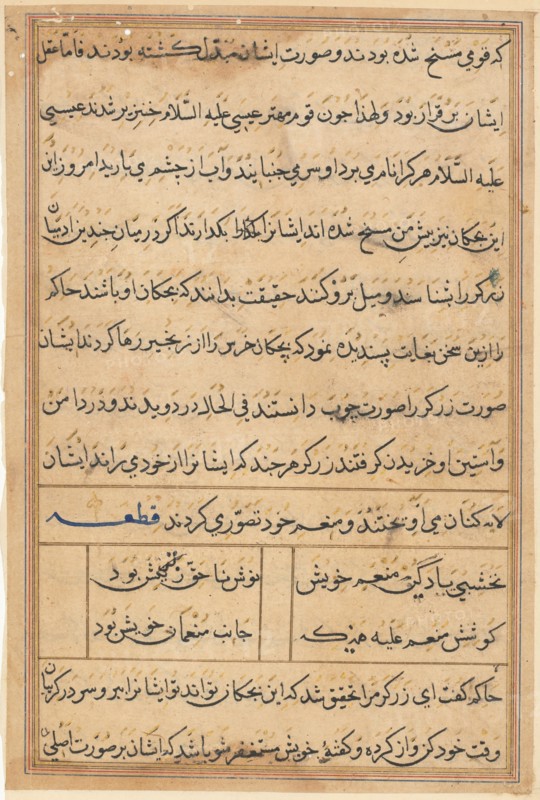 که قومی مسخ شده بودند و صورت ایشان مبدل کشته بودند فاما عقل
ایشان بر قرار بود و لهذا جون قوم مهتر عیسی علیه السلام خنزیر شدند عیسی
علیه السلام هر کرا نام می برد او سر می جنبانید و آب از چشم می بارید امروز این
این بجکان نیز پیش من مسخ شده اند ایشانرا بکدارند اکر در میان جندین ادمیان
زرکر را بشناسند و میل برو کنند حقیقت بدانند که بجکان او باشند حاکم
را ازین سخن بغایت پسندیده نمود که بچکان خرس را از زنجیر رها کردند ایشان
صورت زرکر را صورت چوب دانستند فی الحال در دویدند و در دامن
و آستین او خزیدن کرفتند زرکر هر جند که ایشانرا از خود می راند ایشان
لابه کنان می آویختند و منعم خود تصوری کردند قطعه
نخشبی یاد کن منعم خویش
نوش با حق
کوشش منعم علیه
جانب منعمان خویش بود
حاکم کفت ای زرکر مرا تحقق شد که این بجکان تو اند تو ایشانرا ببر و سر در کریبان
وقت خود کن و از کرده و کفته خویش مستغفر شو باشد که ایشان بر صورت اصلی